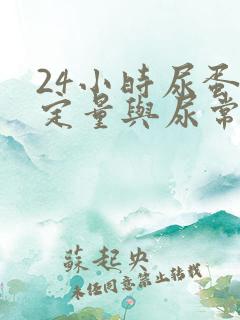 24小時尿蛋
定量與尿常
蘇起央
未經同意禁止轉載